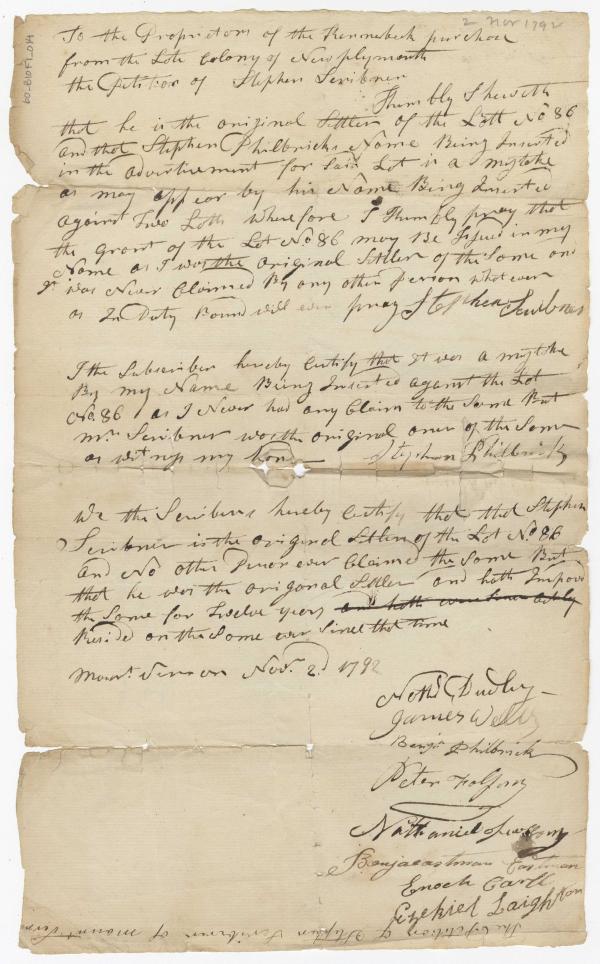 2 Nov 1792
60-B10F1-014
To the Proprietors of the Kennebeck purchase
from the Late Colony of Newplymouth
the Petition of Stephen Scribner
Humbly Sheweth
that he is the original Settler of the Lott No 86
and that Stephen Philbricks Name Being Inserted
in the advertisement for said Lot is a mistake
as may appear by his Name Being Inserted
against two Lotts Wherefore I Humbly pray that
the grant of the Lot No 86 may Be Issued in my
Name as I was the original Settler of the Same and
was Never Claimed By any other Person whatever
as In Duty Bound will ever pray Stephen Scribner
I the Subscriber hereby Certify that it was a mistake
By my Name Being Inserted against the Lot
No. 86 as I Never had any Claim to the Same But
mr. Scribner was the original oner of the Same
as witness my hand Stephen Philbrick
We the Scribers hereby Certify that that Stephen
Scribner is the original Settler of the Lot No 86
and No other Person ever Claimd the Same But
that he was the original Settler and hath Improv
the Same for Twelve years and hath ever Since
Resided on the Same ever Since that time
Mount Vernon Novr. 2d 1792
Nathl Dudley
James
Benjn Philbrick
Peter Folsom
Nathaniel
Benja Eastman Eastman
Enoch
Ezekiel Laighton
The Petition of Stephen Scribner of mount